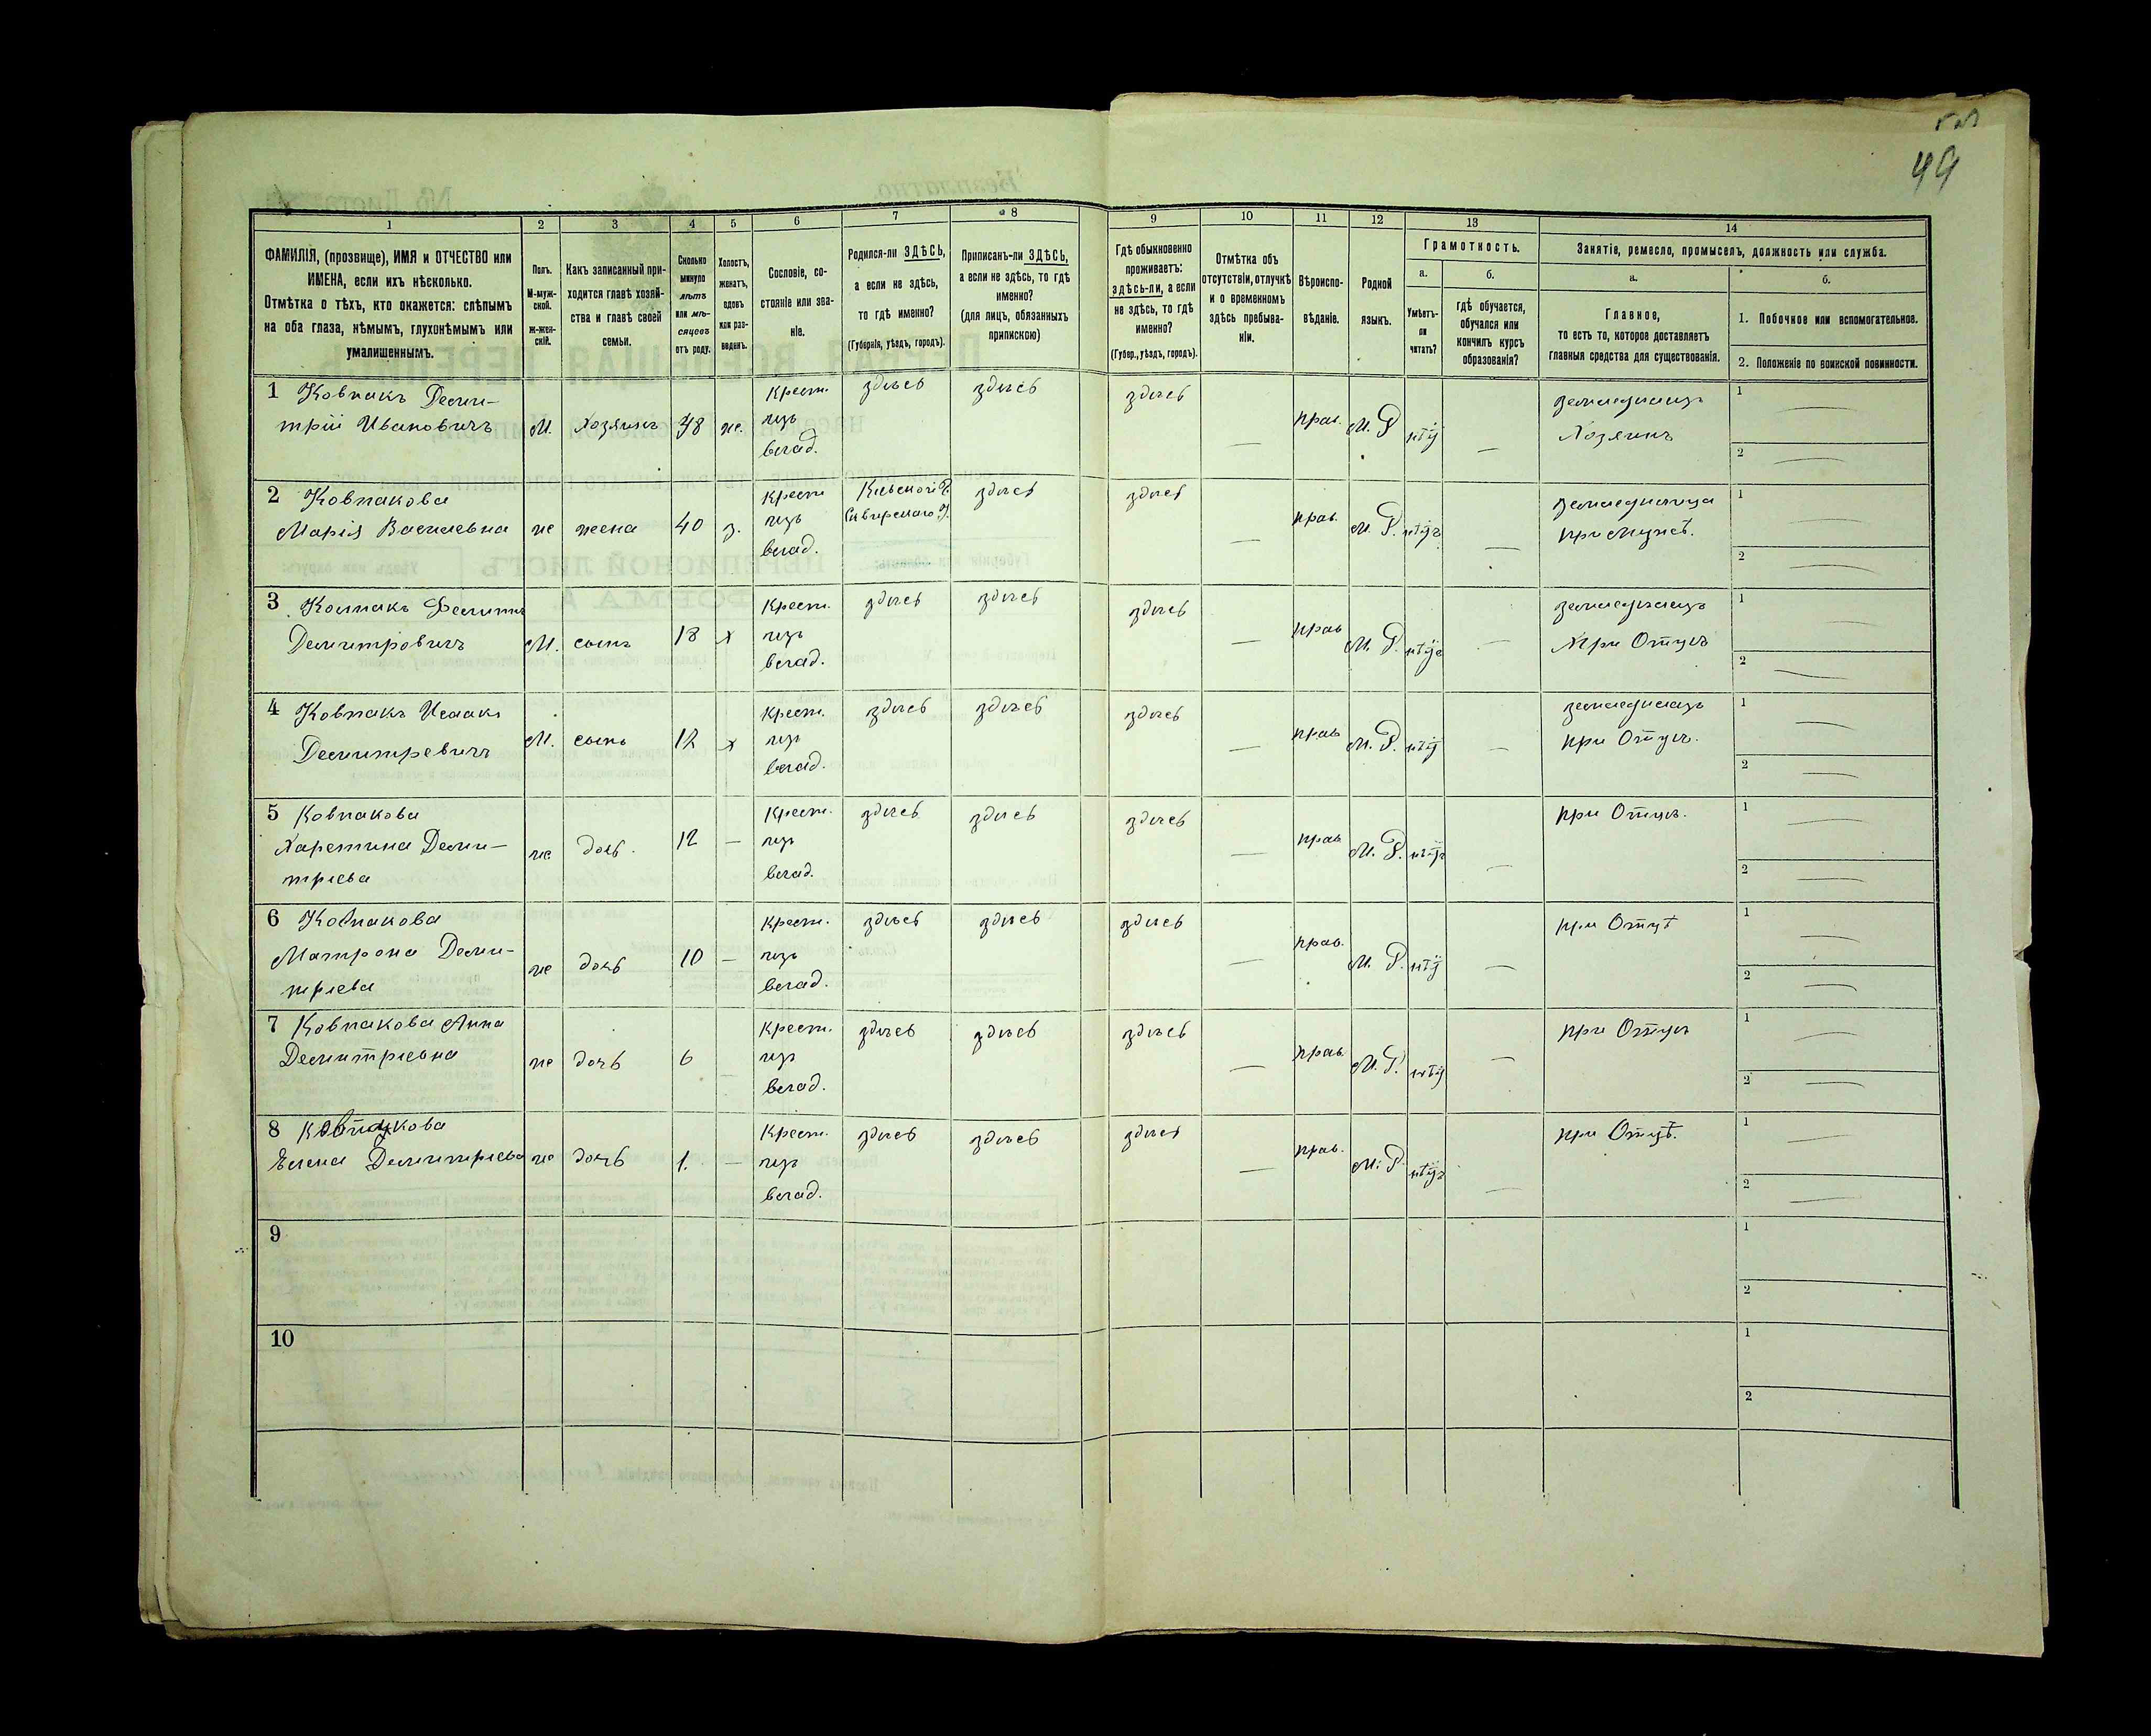 49
1 2 3 4 5 6 7 8 9 10 11 12 13 14
ФАМИЛІЯ, (прозвище), ИМЯ и ОТЧЕСТВО или
ИМЕНА, если ихъ нѣсколько.
Отмѣтка о тѣхъ, кто окажется: слѣпымъ
на оба глаза, нѣмымъ, глухонѣмымъ или
умалишеннымъ.
Полъ.
М-муж-
ской.
ж-жен-
скій.
Какъ записанный при-
ходится главѣ хозяй-
ства и главѣ своей
семьи.
Сколько
минуло
лѣтъ
или мѣ-
сяцевъ
отъ роду.
Холостъ,
женатъ,
вдовъ
или раз-
веденъ.
Сословіе, со-
стояніе или зва-
ніе.
Родился-ли ЗДѢСЬ,
а если не здѣсь,
то гдѣ именно?
(Губернія, уѣздъ, городъ).
Приписанъ-ли ЗДѢСЬ,
а если не здѣсь, то гдѣ
именно?
(для лицъ, обязанныхъ
припискою)
Гдѣ обыкновенно
проживаетъ:
здѣсь-ли, а если
не здѣсь, то гдѣ
именно?
(Губер., уѣздъ, городъ).
Отмѣтка объ
отсутствіи, отлучкѣ
и о временномъ
здѣсь пребыва-
ніи.
Вѣроиспо-
вѣданіе.
Родной
языкъ.
Грамотность.
а.
Умѣетъ-
ли
читать?
б.
гдѣ обучается,
обучался или
кончилъ курсъ
образованія?
Занятіе, ремесло, промыселъ, должность или служба.
а.
Главное,
то есть то, которое доставляетъ
главныя средства для существованія.
б.
1. Побочное или вспомогательное.
2. Положеніе по воинской повинности.
1 Ковпакъ Деми-
трій Ивановичъ
М. Хозяинъ 48 же.
Крест.
изъ
влад.
здѣсь здѣсь здѣсь — прав. М. Р —
земледѣлецъ
Хозяинъ
1 —
2 —
2 Ковпакова
Марія Василевна
же жена 40 з.
Крест
изъ
влад.
Кіевской Г.
Сквирскаго У.
здѣсь здѣсь — прав. М. Р. —
земледѣлица
при мужѣ.
1 —
2 —
3
Демитровичъ
М. сынъ 18 х
Крест.
изъ
влад.
здѣсь здѣсь здѣсь — прав М. Р. —
земледѣлецъ
При Отцѣ
1 —
2 —
4 Ковпакъ Исаакъ
Демитревичъ
М. сынъ 12 х
Крест.
изъ
влад.
здѣсь здѣсь здѣсь — прав М. Р. —
земледѣлецъ
при Отцѣ.
1 —
2 —
5 Ковпакова
Харетина Деми-
тріева
же дочь. 12 —
Крест.
изъ
влад.
здѣсь здѣсь здѣсь — прав М. Р. —
при Отцѣ.
1 —
2 —
6 Ковпакова
Матрона Деми-
тріева
же дочь 10 —
Крест.
изъ
влад.
здѣсь здѣсь здѣсь — прав. М. Р. —
при Отцѣ
1 —
2 —
7 Ковпакова Анна
Демитріевна
же дочь 6 —
Крест.
изъ
влад.
здѣсь здѣсь здѣсь — прав. М. Р. —
при Отцѣ
1 —
2 —
8 Ковпакова
Елена Демитріева
же дочь 1. —
Крест.
изъ
влад.
здѣсь здѣсь здѣсь — прав. М. Р. —
при Отцѣ.
1 —
2 —
9
1
2
10
1
2